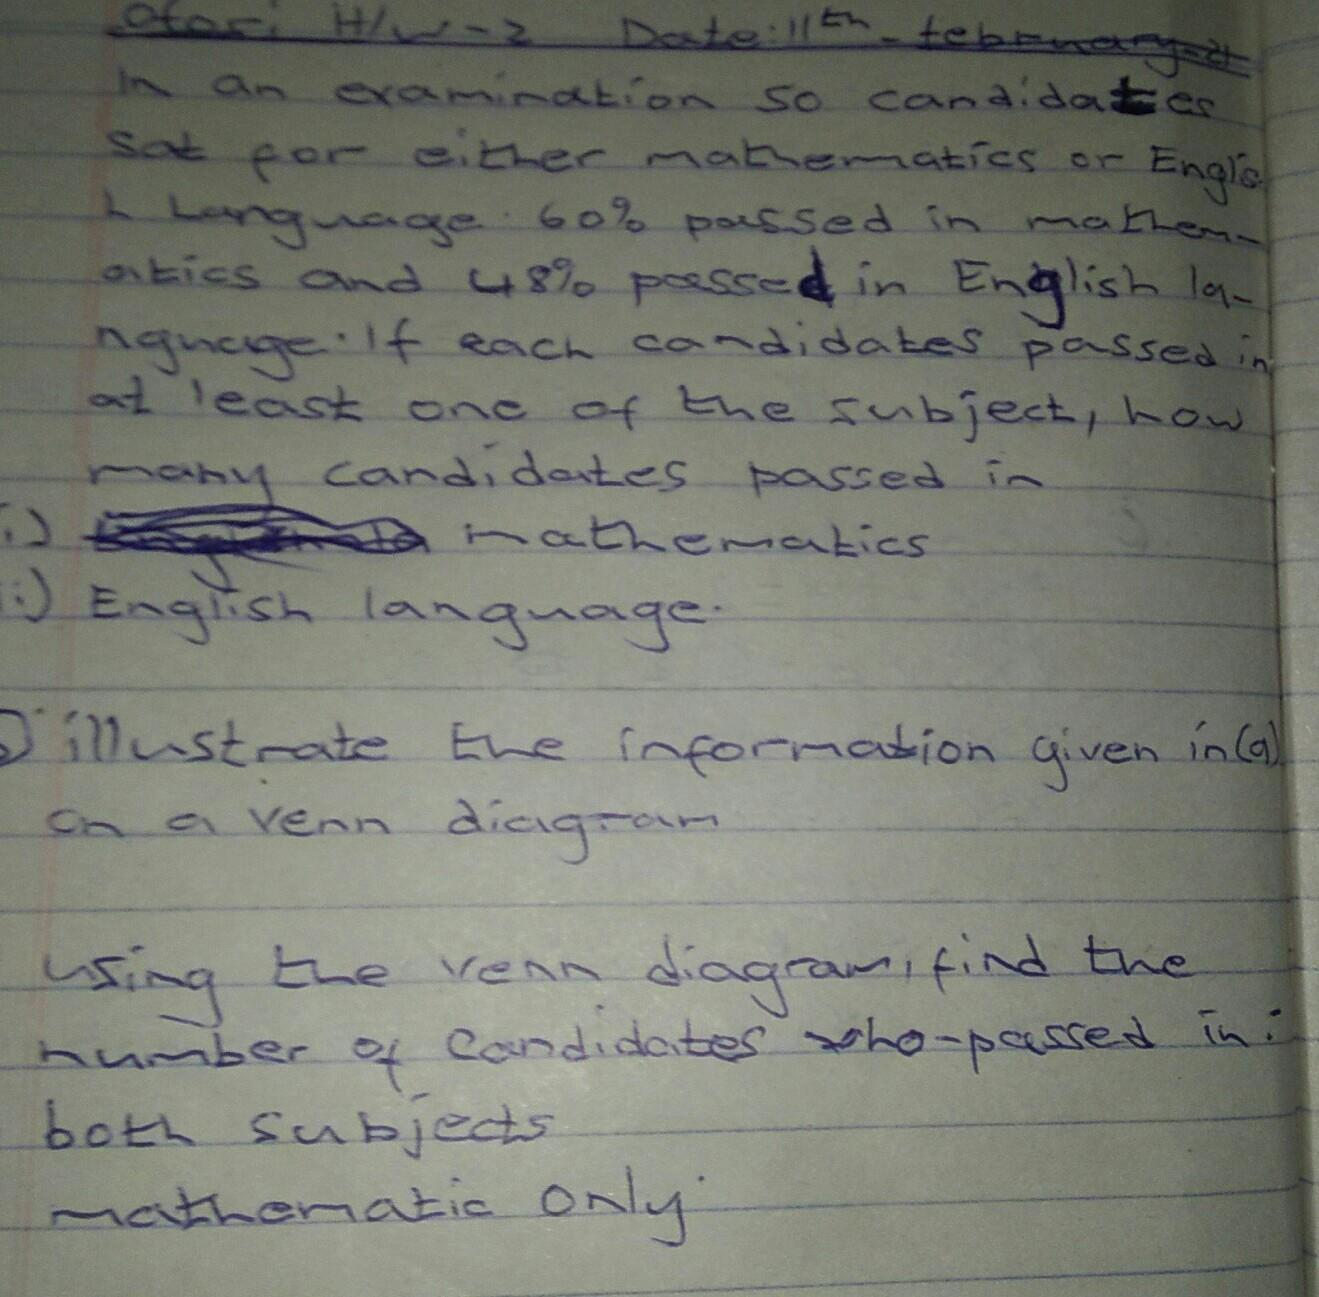 H/W-2 Date: 11th february
In an examination 50 candidates
sat for either mathematics or Englis
h Language. 60% passed in mathem-
atics and 48% passed in English la-
nguage. If each candidates passed in
at least one of the subject, how
many candidates passed in
i.) mathematics
ii) English language.
illustrate the information given in (a)
on a venn diagram
using the venn diagram, find the
number of candidates who-passed in:
both subjects
mathematic only.